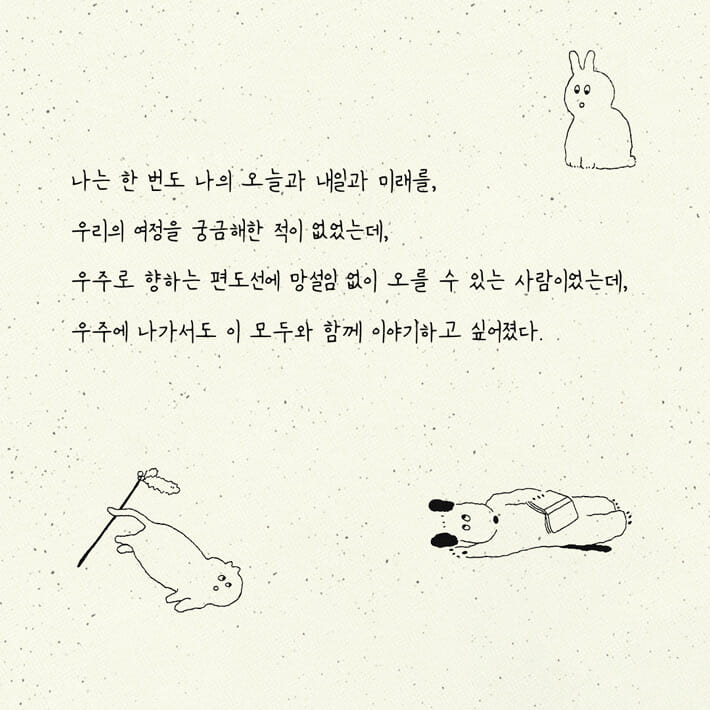 나는 한 번도 나의 오늘과 내일과 미래를,
우리의 여정을 궁금해한 적이 없었는데,
우주로 향하는 편도선에 망설임 없이 오를 수 있는 사람이었는데,
우주에 나가서도 이 모두와 함께 이야기하고 싶어졌다.